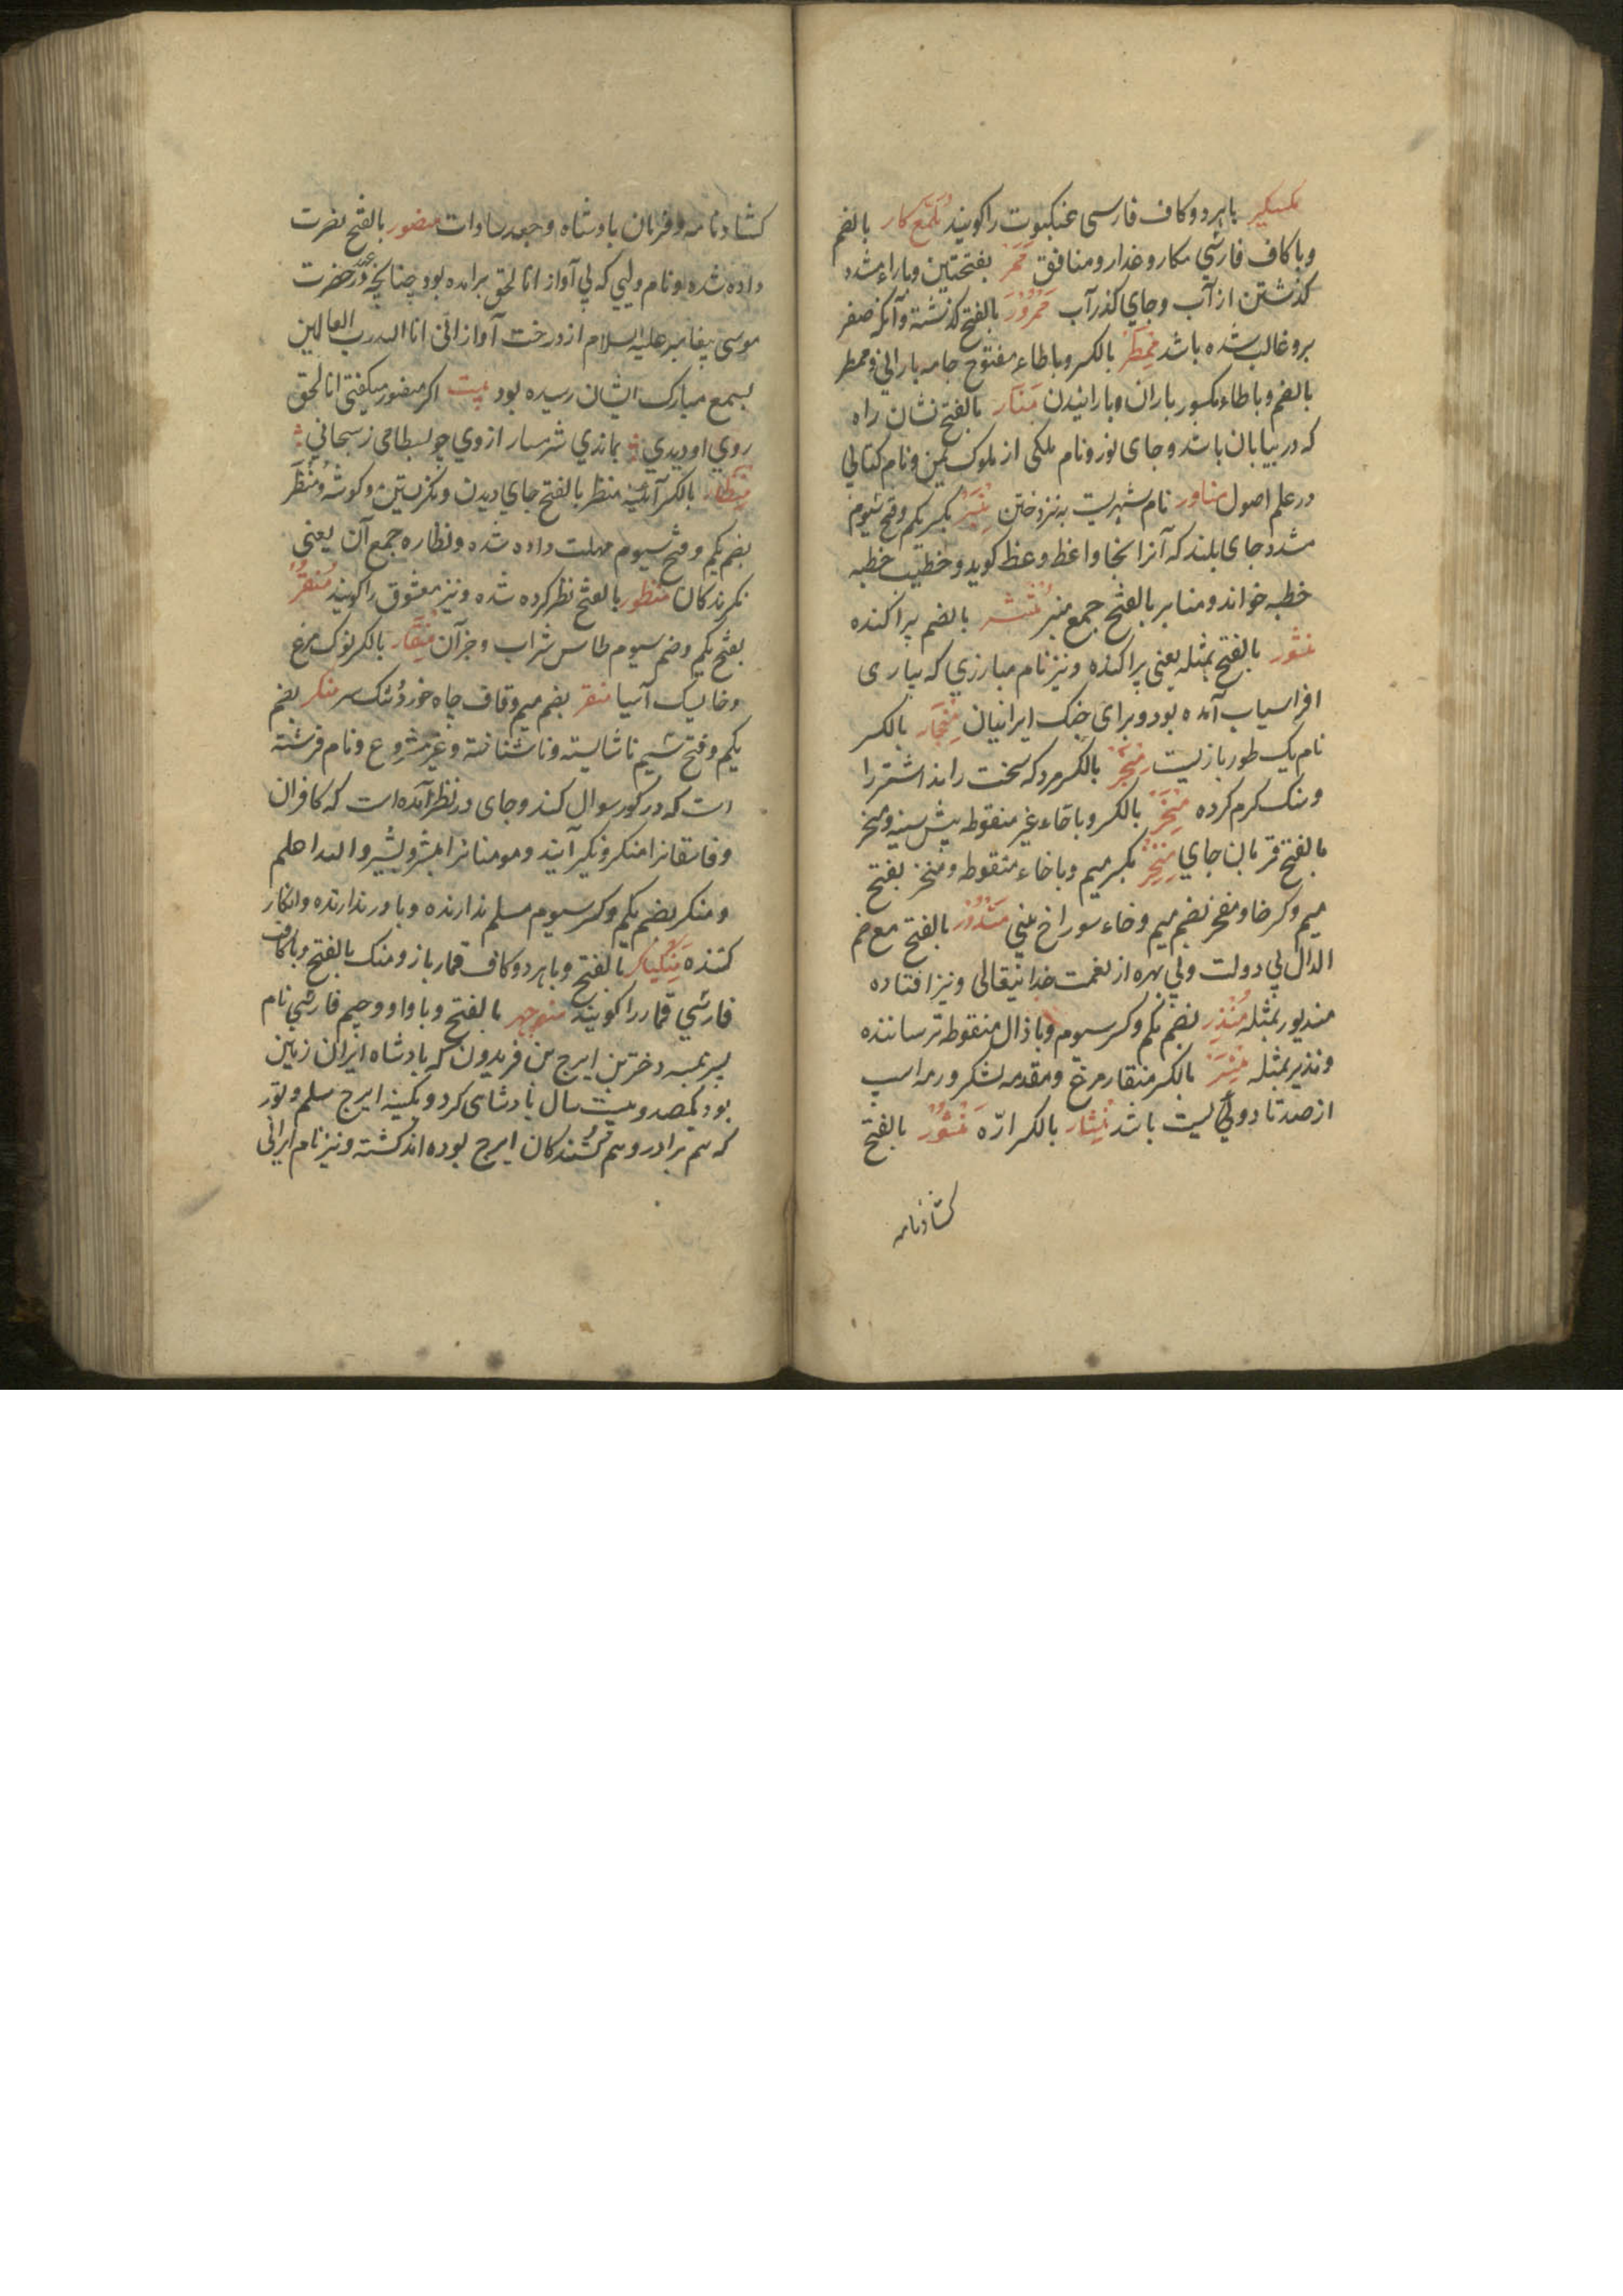 مکسکیر با هر دو کاف فارسی عنکبوت را کویند ملمع کار بالضم
و با کاف فارسی مکار و غدار و منافق ممر بفتحتین و باراء مشدد
کذشتن از آب و جای کذر آب ممرور بالفتح کذشته و آنکه صفر
برو غالب شده باشد ممطر بالکسر و با طاء مفتوح جامه بارانی و ممطر
بالضم و با طاء مکسور باران و بارانیدن منار بالفتح نشان راه
که در بیابان باشد و جای نور و نام ملکی از ملوک یمن و نام کتابی
در علم اصول مناور نام شهریست منبر بکسر یکم و فتح سیوم
مشدد جای بلند که آنرا بخا واعظ وعظ کوید و خطیب خطبه
خطبه خواند و منابر بالفتح جمع منبر منتشر بالضم پراکنده
منثور بالفتح بمثله یعنی پراکنده و نیز نام مبارزی که بیاری
افراسیاب آمده بود و برای جنک ایرانیان منجار بالکسر
نام یک طور بازیست منجر بالکسر مرد که سخت راند اشتر را
و سنک کرم کرده منحر بالکسر و با حاء غیر منقوطه پیش سینه و منحر
بالفتح قربان جای منخر بکسر میم و با خاء منقوطه و منخر بفتح
میم و کسر خا و منخر بضم میم و خاء سوراخ بینی مندور بالفتح مع ضم
الدال بی دولت و بی بهره از نعمت خدایتعالی و نیز افتاده
مندیور بمثله منذر بضم یکم و کسر سیوم و با ذال منقوطه ترساننده
و نذیر بمثله منسر بالکسر منقار مرغ و مقدمه لشکر و رمه اسپ
از صد تا دویست باشد منشار بالکسر ارّه منشور بالفتح
کشادنامه
کشادنامه و فرمان بادشاه و جعد سادات منصور بالفتح نصرت
داده شده و نام ولیی که بی آواز انا الحق برامده بود چنانچه در عهد حضرت
موسی پیغامبر علیه السلام از درخت آواز انی انا الله رب العالمین
بسمع مبارک ایشان رسیده بود بیت اکر منصور میکفتی انا الحق
روی او دیدی بماندی شرمسار از وی چو بسطامی ز سبحانی
منظار بالکسر آئینه منظر بالفتح جای دیدن و نکریستن و کوشه و منظر
بضم یکم و فتح سیوم مهلت داده شده و نظاره جمع آن یعنی
نکرندکان منظور بالفتح نظر کرده شده و نیز معشوق را کویند منقر
بفتح یکم و ضم سیوم طاس شراب و جز آن منقار بالکسر نوک مرغ
و خایسک آسیا منقر بضم میم و قاف چاه خورد تنک سر منکر بضم
یکم و فتح سیم ناشایسته و ناشناخته و غیر مشروع و نام فرشته
است که در کور سوال کند و جای در نظر آمده است که کافران
و فاسقانرا منکر و نکیر آیند و مومنانرا مبشر و بشیر و الله اعلم
و منکر بضم یکم و کسر سیوم مسلم ندارنده و باور ندارنده و انکار
کننده منکیاکر بالفتح و با هر دو کاف قمار باز و منک بالفتح و باکاف
فارسی قمار را کویند منوجهر بالفتح و با واو و جیم فارسی نام
پسر نبسه دخترین ایرج بن فریدون که بادشاه ایران زمین
بود یکصد و بیست سال بادشاهی کرد و بکینه ایرج سلم و تور
که هم برادر و هم کشندکان ایرج بوده اند کشته و نیز نام ایرانی